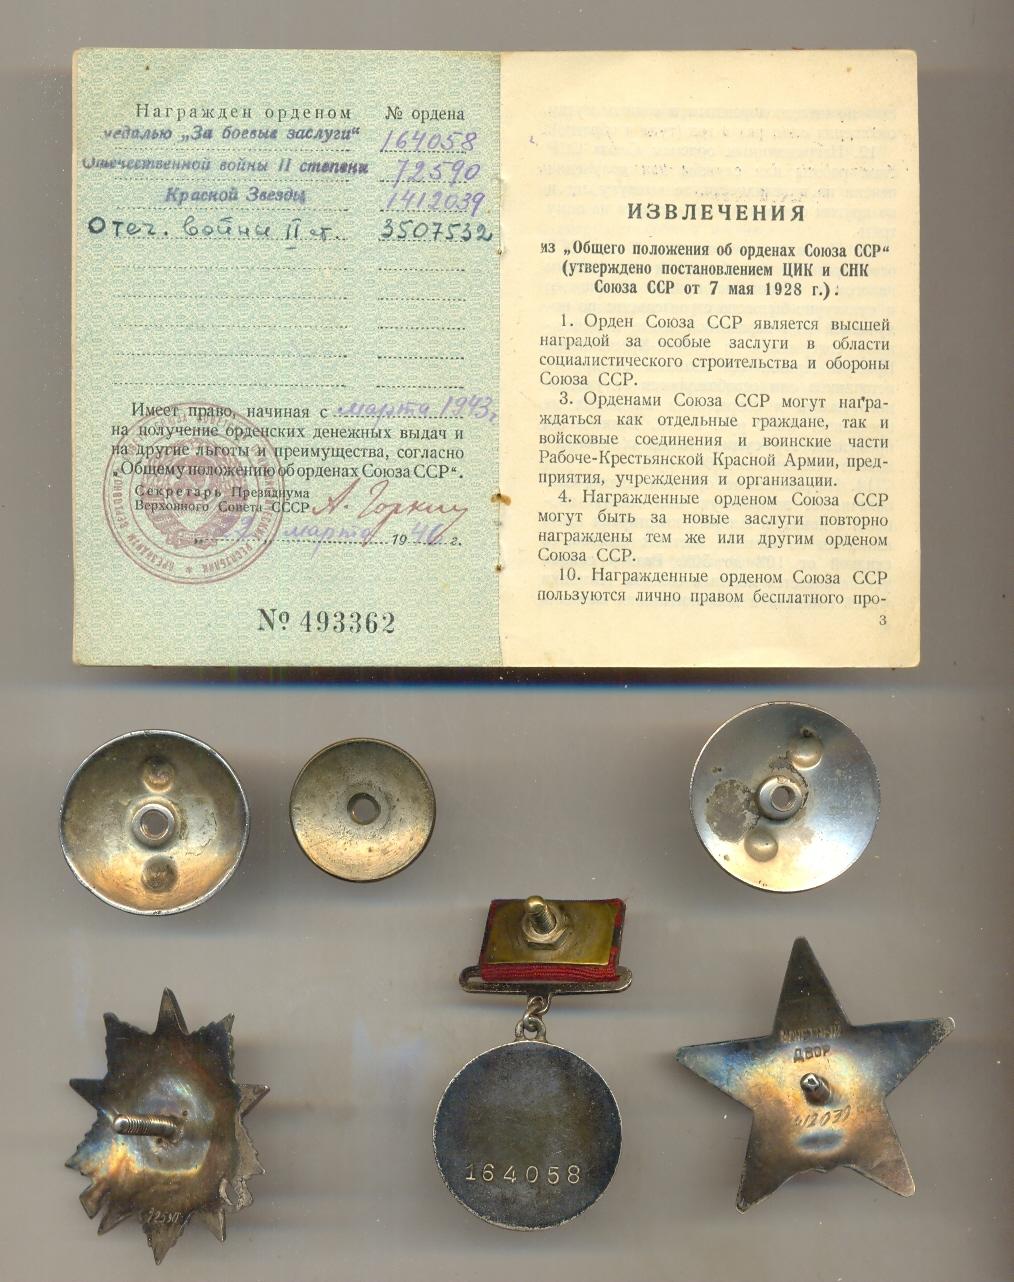 Награжден орденом № ордена
медалью „За боевые заслуги“ 164058
Отечественной войны II степени 72590
Красной Звезды 1412039
Отеч. войны II ст. 3507532
Имеет право, начиная с марта 1943 г.
на получение орденских денежных выдач и
на другие льготы и преимущества, согласно
„Общему положению об орденах Союза ССР“.
Секретарь Президиума
Верховного Совета СССР А. Горкин
марта 1946 г.
№ 493362
ИЗВЛЕЧЕНИЯ
из „Общего положения об орденах Союза ССР“
(утверждено постановлением ЦИК и СНК
Союза ССР от 7 мая 1928 г.):
1. Орден Союза ССР является высшей
наградой за особые заслуги в области
социалистического строительства и обороны
Союза ССР.
3. Орденами Союза ССР могут награ-
ждаться как отдельные граждане, так и
войсковые соединения и воинские части
Рабоче-Крестьянской Красной Армии, пред-
приятия, учреждения и организации.
4. Награжденные орденом Союза ССР
могут быть за новые заслуги повторно
награждены тем же или другим орденом
Союза ССР.
10. Награжденные орденом Союза ССР
пользуются лично правом бесплатного про-
3
МОНЕТНЫЙ
ДВОР
164058